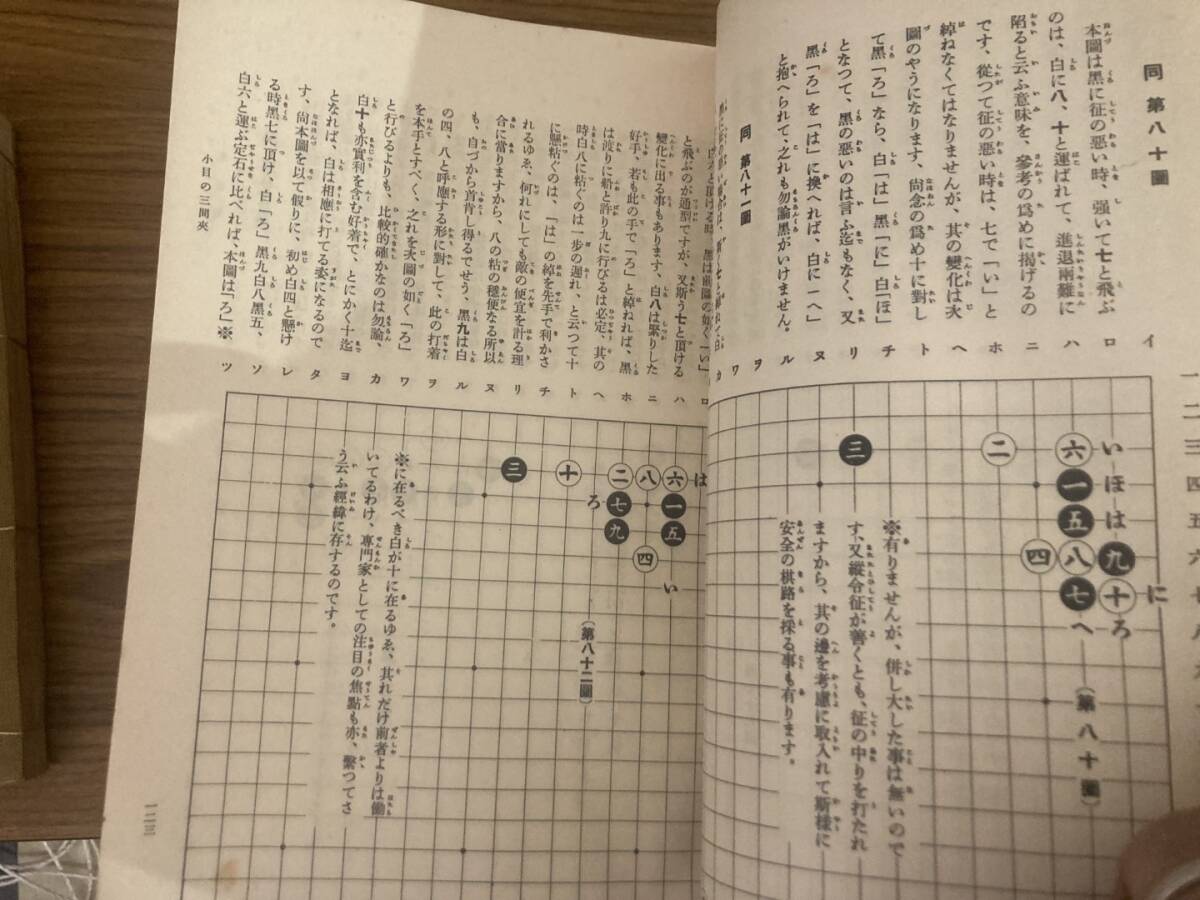 同第八十圖
本圖は黑に征の惡い時、强いて七と飛ぶ
のは、白に八、十と運ばれて、進退兩難に
陷ると云ふ意味を、參考の爲めに揭げるの
です、從つて征の惡い時は、七で「い」と
綽ねなくてはなりませんが、其の變化は次
圖のやうになります、尙念の爲め十に對し
て黑「ろ」なら、白「は」黑「に」白「ほ」
となつて、黑の惡いのは言ふ迄もなく、又
黑「ろ」を「は」に換へれば、白に「へ」
と抱へられて、之れも勿論黑がいけません。
イロハニホヘトチリヌルヲワカ
一二三四五六七八
六 二 三 い
一 ほ
五 は
四 八 九
七 十 に
へ ろ
(第八十圖)
※有りませんが、併し大した事は無いので
す、又縱令征が善くとも、征の中りを打たれ
ますから、其の邊を考慮に取入れて斯樣に
安全の棋路を採る事も有ります。
同第八十一圖
と飛ぶのが通型ですが、又斯う七と頂ける
變化に出る事もあります、白八は緊りした
好手、若も此の手で「ろ」と綽ねれば、黑
は渡りに船と許り九に行びるは必定、其の
時白八に粘ぐのは一步の遲れ、と云つて十
に懸粘ぐのは、「は」の綽を先手で利かさ
れるゆゑ、何れにしても敵の便宜を計る理
合に當りますから、八の粘の穩便なる所以
も、自づから首肯し得るでせう、黑九は白
の四、八と呼應する形に對して、此の打着
を本手とすべく、之れを次圖の如く「ろ」
と行びるよりも、比較的確かなのは勿論、
白十も亦實利を含む好着で、とにかく十迄
となれば、白は相應に打てる姿になるので
す、尙本圖を以て假りに、初め白四と懸け
る時黑七に頂け、白「ろ」黑九白八黑五、
白六と運ぶ定石に比べれば、本圖は「ろ」※
小目の三間夾
ロハニホヘトチリヌルヲワカヨタレソツ
は 六 八 二 十 三
一 七 ろ
五 九
四
い
(第八十二圖)
※に在るべき白が十に在るゆゑ、其れだけ前者よりは働
いてるわけ、專門家としての注目の焦點も亦、繫つてさ
う云ふ經緯に存するのです。
一二三